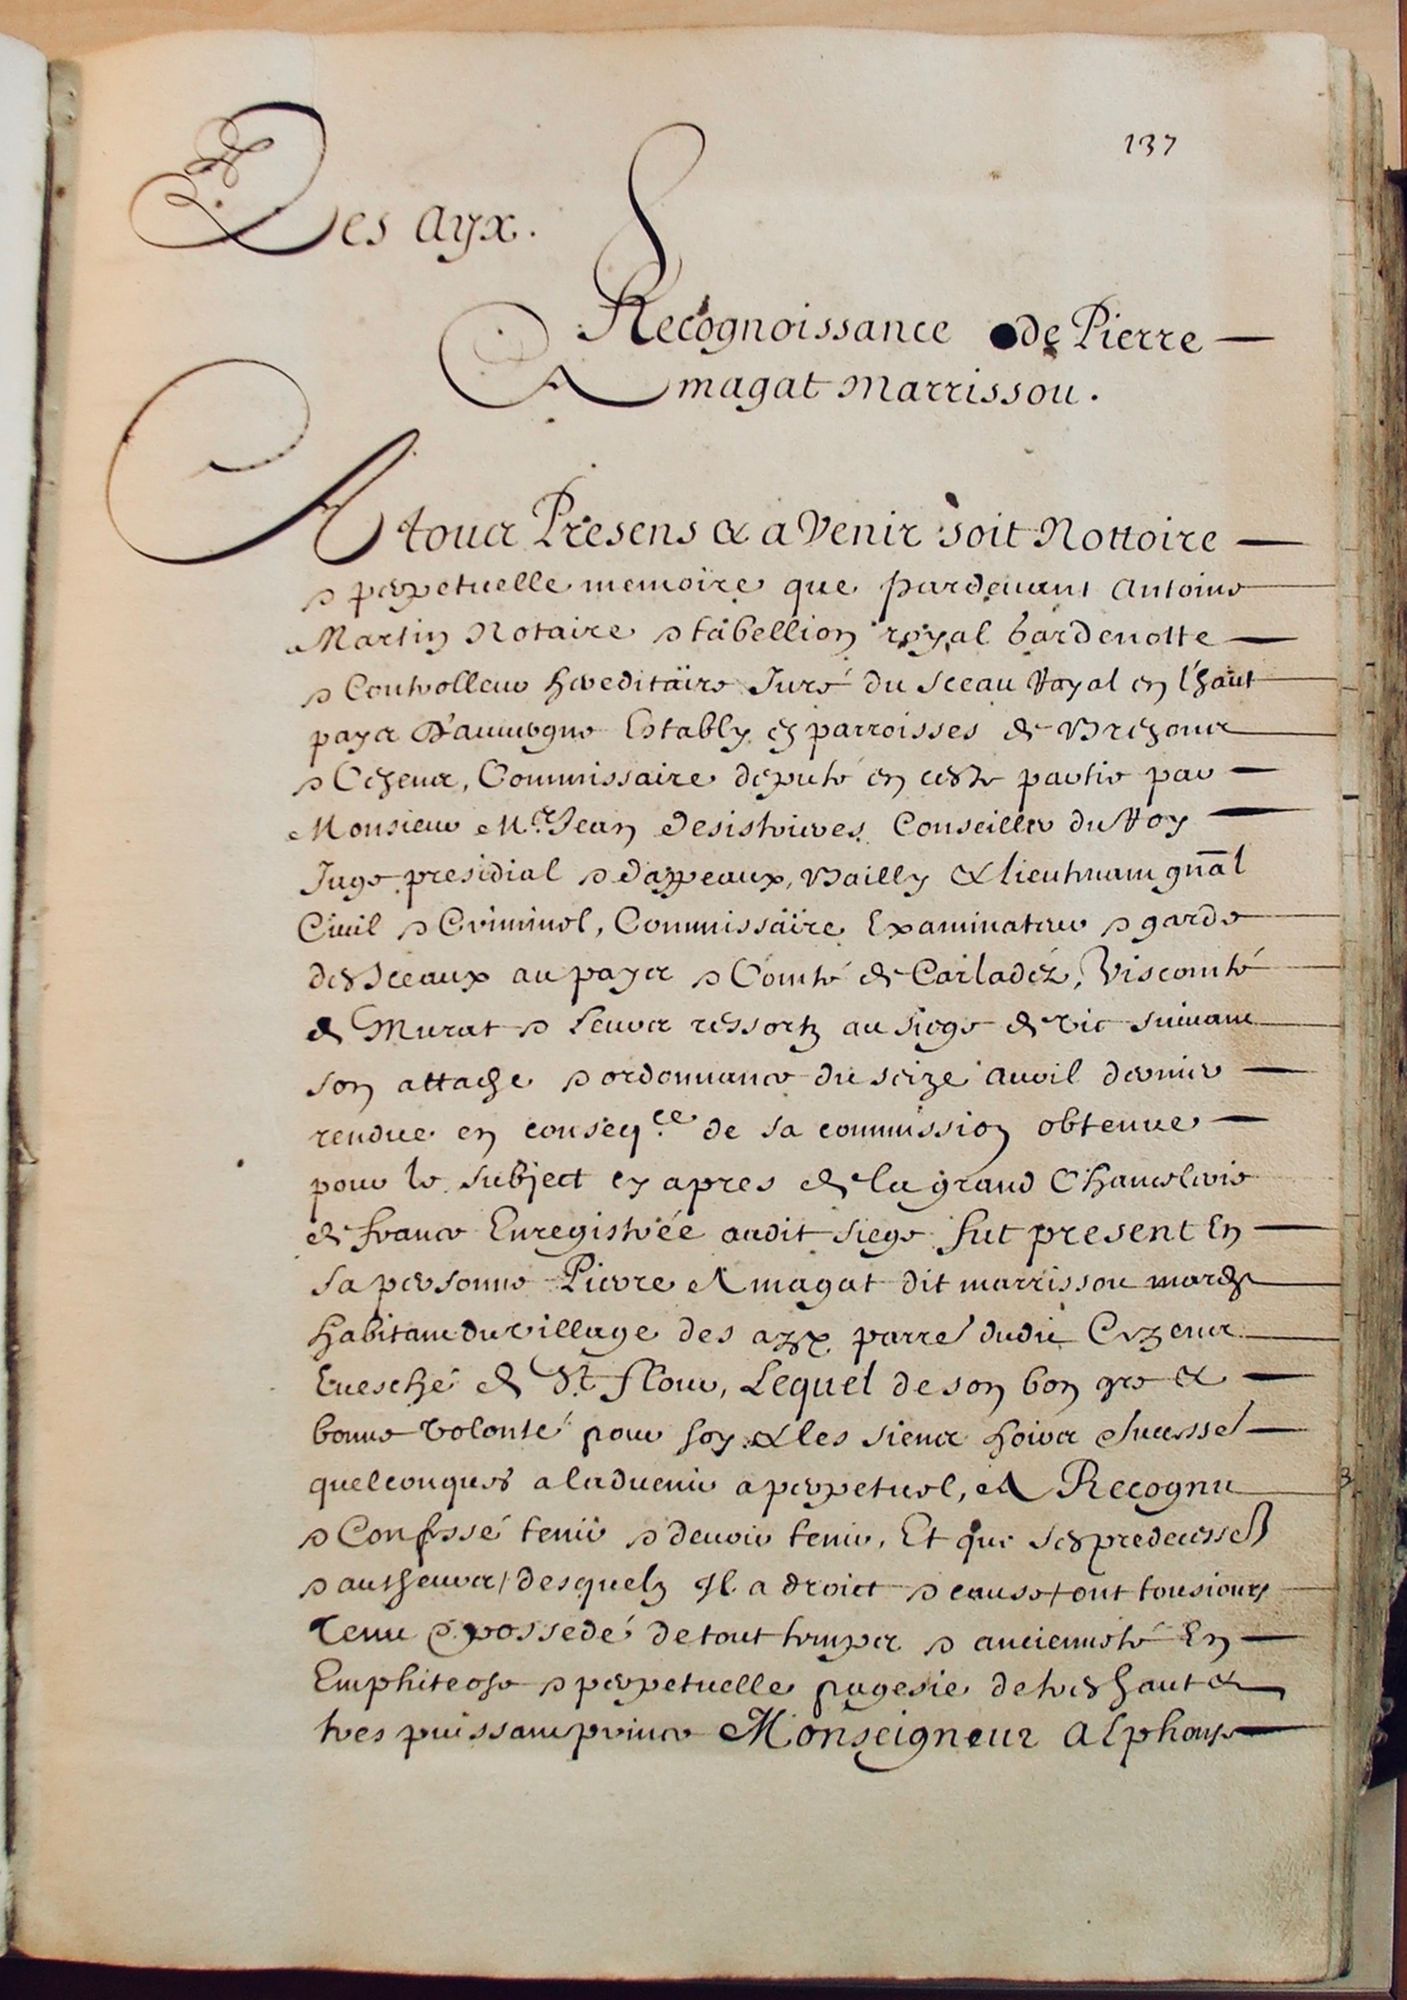 137
Des Ayx.
Recognoissance de Pierre
Amagat Marrissou.
A tous Presens & a Venir soit Nottoire
& perpetuelle memoire que pardevant Antoine
Martin Notaire & tabellion royal gardenotte
& Controlleur hereditaire Juré du sceau Royal en l'haut
pays D'auvergne Estably es parroisses de Brezons
& Cezens, Commissaire deputé en ceste partie par
Monsieur Mre Jean Desistrieres Conseiller du Roy
Juge presidial & d'appeaux, Bailly & lieutenant gnãl
Civil & Criminel, Commissaire Examinateur & garde
des Sceaux au pays & Comté de Carladéz, Viscomté
de Murat & leurs ressortz au siege de vic suivant
son attache & ordonnance du seize avril dernier
rendue en conseqce de sa commission obtenue
pour le subject cy apres de la grand Chancelerie
de france Enregistrée audit siege fut present En
sa personne Pierre Amagat dit marrissou
habitant du village des ayx parre dudit Cezens
Evesché de St flour, Lequel de son bon gre &
bonne volonté pour soy & les siens hoirs
quelconques a ladvenir a perpetuel, a Recognu
& Confessé tenir & devoir tenir, Et que ses predecess
& autheurs / desquelz Il a droict & cause / ont tousiours
tenu & possedé de tout temps & ancienneté En
Emphiteose & perpetuelle pagesie de tres haut &
tres puissant prince Monseigneur Alphonse